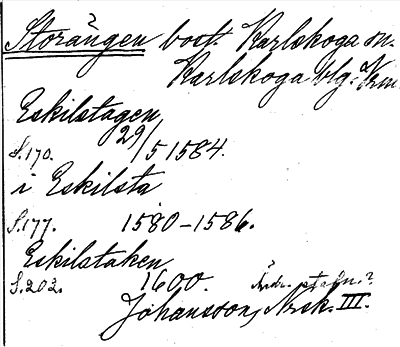 Storängen bost. Karlskoga sn.
Karlskoga blg. Vrm
Eskilstagen
S.170. 29/5 1584.
i Eskilsta
S.177. 1580-1586.
Eskilstaken
S.202. 1600. Ändr. stafn.?
Johansson, Nrsk. III.